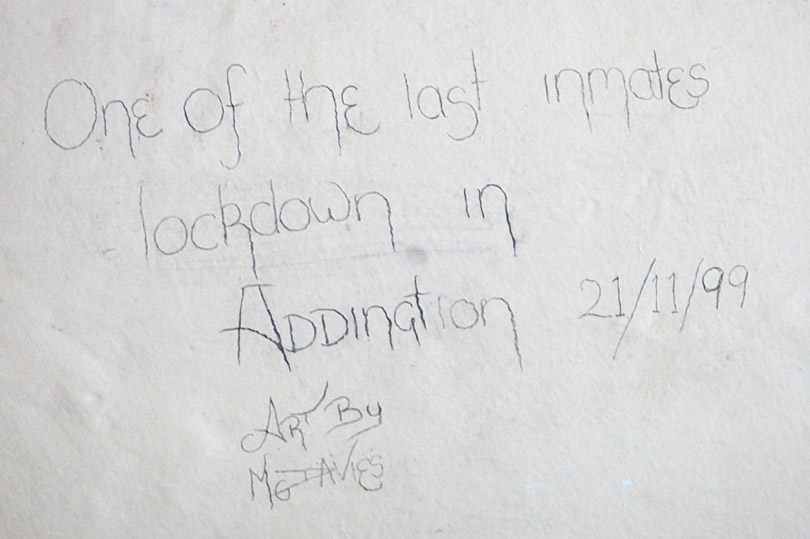 One of the last inmates
lockdown in
ADDington 21/11/99
ART By
MG DAVIES